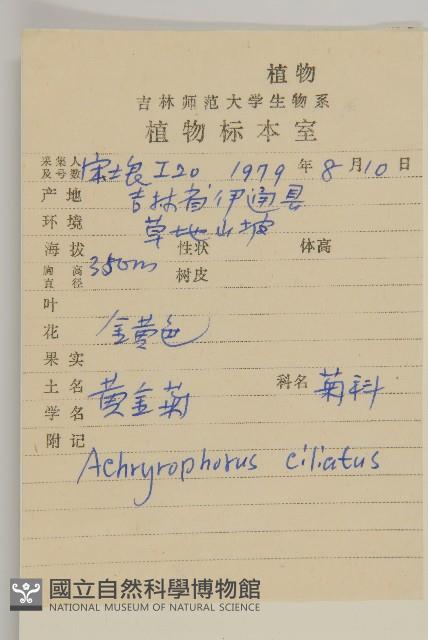 植物
吉林师范大学生物系
植物标本室
采集人及号数 宋士良 I20 1979 年 8 月 10 日
产地 吉林省伊通县
环境 草地山坡
海拔 350m 性状 体高
胸高直径 树皮
叶
花 金黄色
果实
土名 黄金菊 科名 菊科
学名
附记 Achryrophorus ciliatus
國立自然科學博物館
NATIONAL MUSEUM OF NATURAL SCIENCE